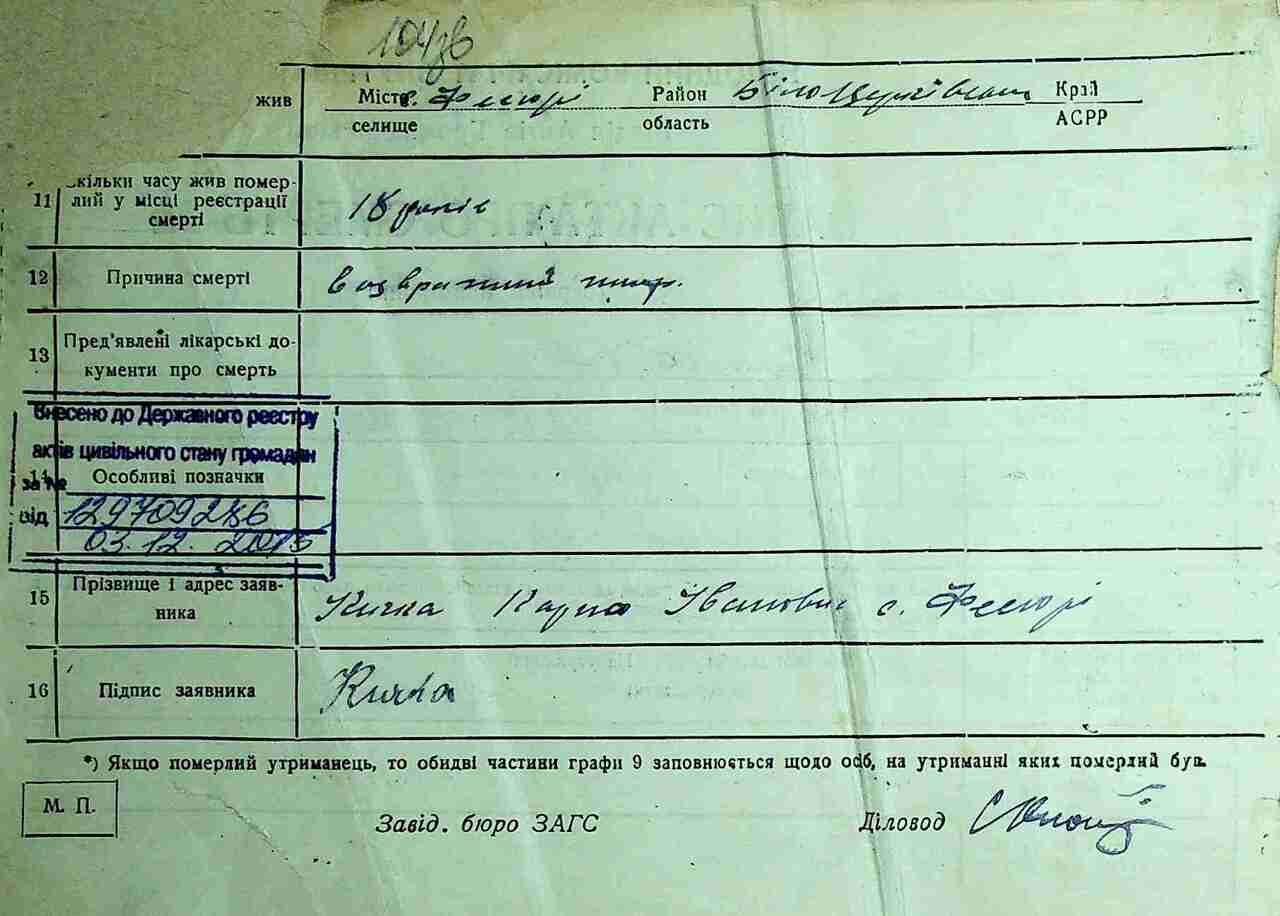 104зв
жив
Місто с. Фесюрі Район Білоцерківськ Край
селище область АСРР
11 Скільки часу жив помер-
лий у місці реєстрації
смерті
18 років
12 Причина смерті
возвратний тиф.
13 Пред'явлені лікарські до-
кументи про смерть
Внесено до Державного реєстру
актів цивільного стану громадян
за №
14 Особливі позначки
від
03.12.2013
15 Прізвище і адрес заяв-
ника
Кичка Карпо Іванович с. Фесюрі
16 Підпис заявника
Кичка
*) Якщо померлий утриманець, то обидві частини графи 9 заповнюється щодо осіб, на утриманні яких померлий був.
М. П.
Завід. бюро ЗАГС Діловод